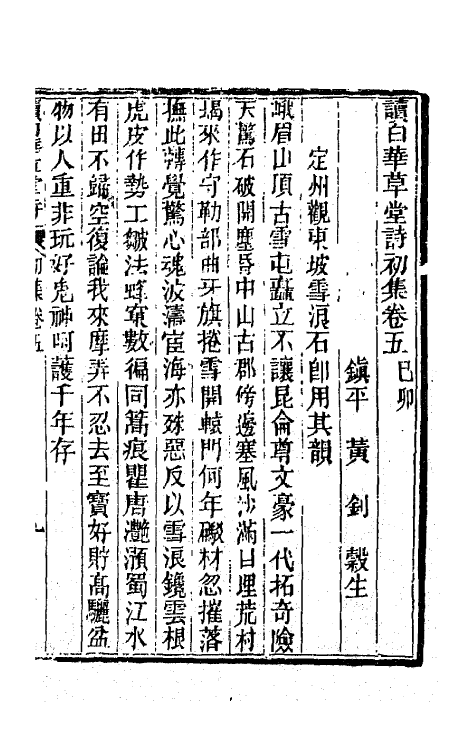 讀白華草堂詩初集卷五己卯
鎮平 黃釗 穀生
定州觀東坡雪浪石卽用其韻
峨眉山頂古雪屯矗立不讓昆侖尊文豪一代拓奇險
天驚石破開塵昏中山古郡傍邊塞風沙滿目埋荒村
朅來作守勒部曲牙旗捲雪開轅門何年礮材忽摧落
撫此犖覺驚心魂波濤宦海亦殊惡反以雪浪鑱雲根
虎皮作勢工皴法蜂窠數徧同篙痕瞿唐灩澦蜀江水
有田不歸空復論我來摩弄不忍去至寶好貯髙驪盆
物以人重非玩好鬼神呵護千年存
讀白華草堂詩 初集卷五 一